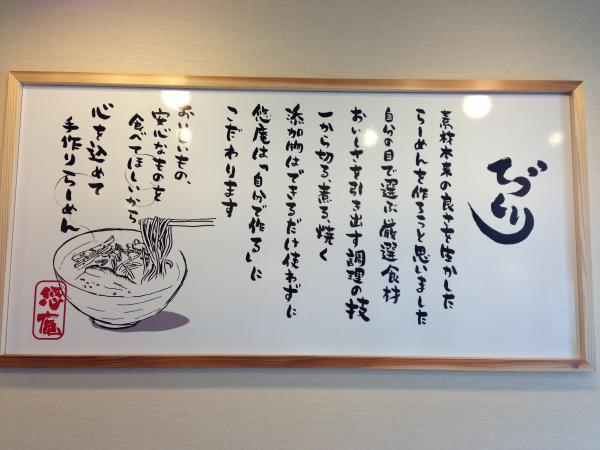 づくり
素材本来の良さを生かした
らーめんを作ろうと思いました
自分の目で選ぶ厳選食材
おいしさを引き出す調理の技
一から切る、煮る、焼く
添加物はできるだけ使わずに
悠庵は「自分で作る」に
こだわります
おいしいもの、
安心なものを
食べてほしいから
心を込めて
手作りらーめん
悠庵